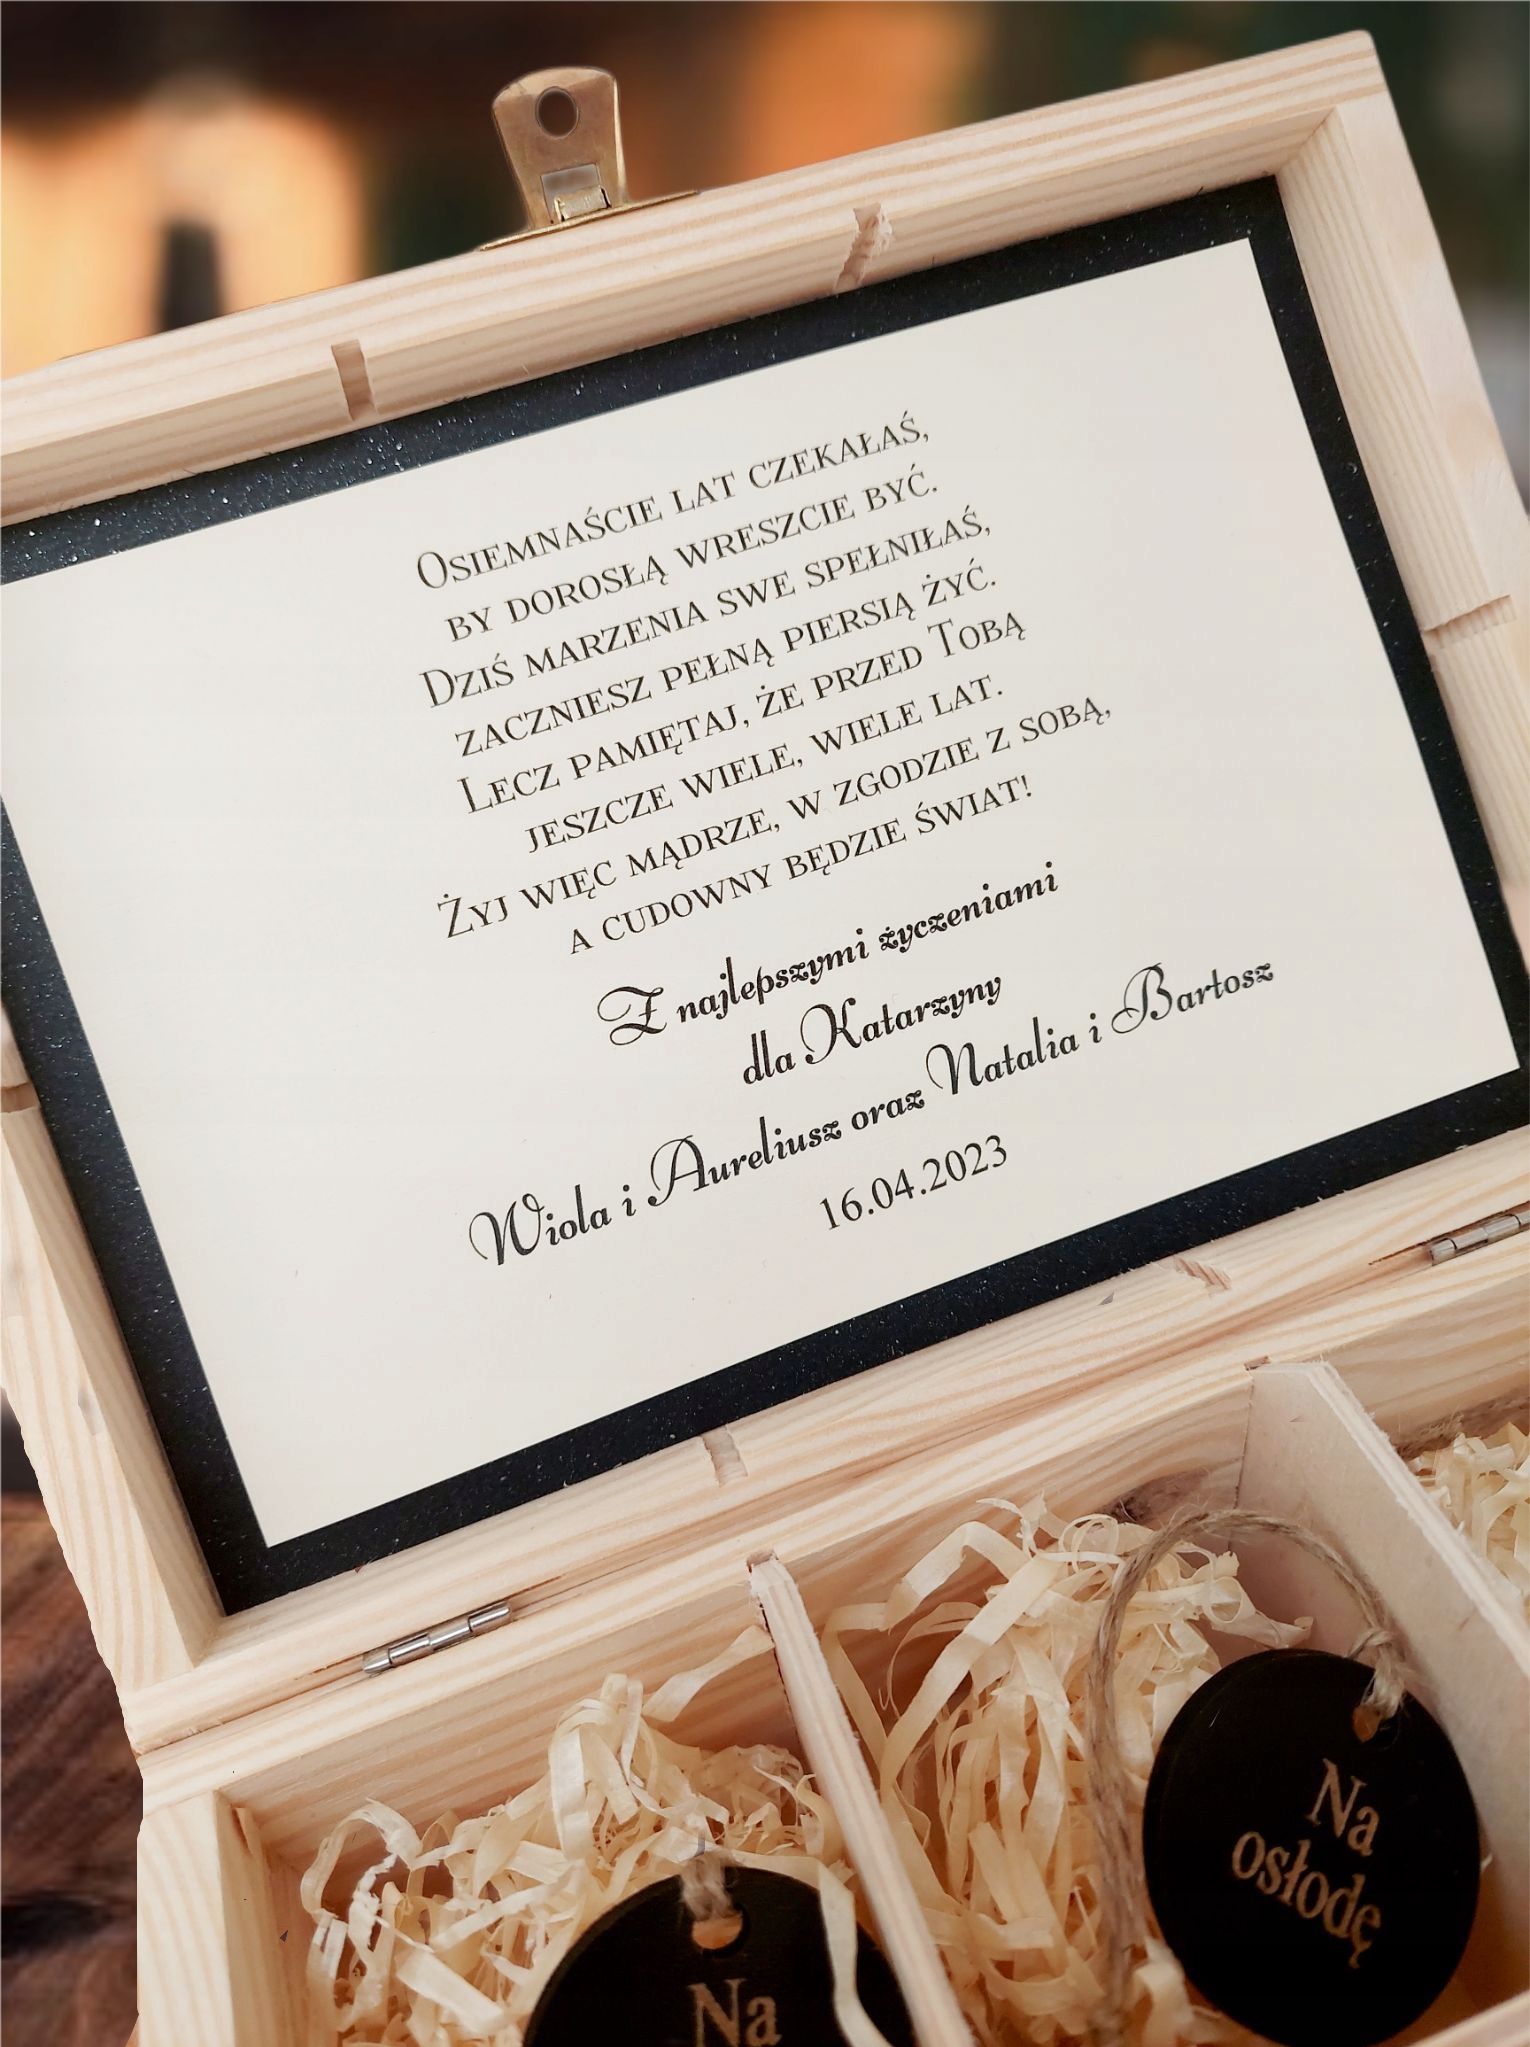 Osiemnaście lat czekałaś,
by dorosłą wreszcie być.
Dziś marzenia swe spełniłaś,
zaczniesz pełną piersią żyć.
Lecz pamiętaj, że przed Tobą
jeszcze wiele, wiele lat.
Żyj więc mądrze, w zgodzie z sobą,
a cudowny będzie świat!
Z najlepszymi życzeniami
dla Katarzyny
Wiola i Aureliusz oraz Natalia i Bartosz
16.04.2023
Na
osłodę
Na